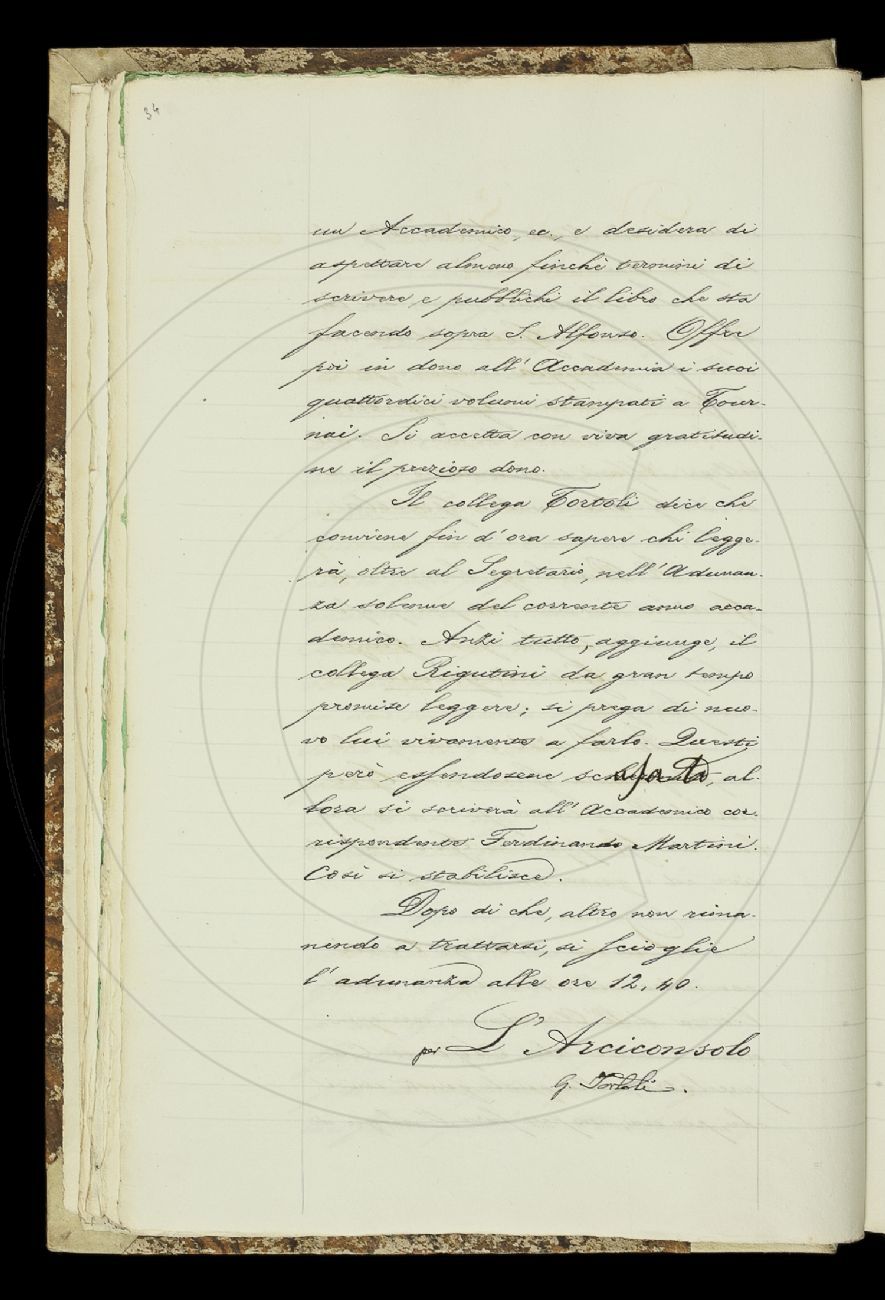 34
un Accademico, ec., e desidera di
aspettare almeno finchè termini di
scrivere e pubblichi il libro che sta
facendo sopra S. Alfonso. Offre
poi in dono all'Accademia i suoi
quattordici volumi stampati a Tour-
nai. Si accetta con viva gratitudi-
ne il prezioso dono.
Il collega Tortoli dice che
conviene fin d'ora sapere chi legge-
rà, oltre al Segretario, nell'Adunan-
za solenne del corrente anno acca-
demico. Anzi tutto, aggiunge, il
collega Rigutini da gran tempo
promise leggere; si prega di nuo-
vo lui vivamente a farlo. Questi
però essendosene, al-
lora si scriverà all'Accademico cor-
rispondente Ferdinando Martini.
Così si stabilisce.
Dopo di che, altro non rima-
nendo a trattarsi, si scioglie
l'adunanza alle ore 12,40.
per L'Arciconsolo
G. Tortoli.